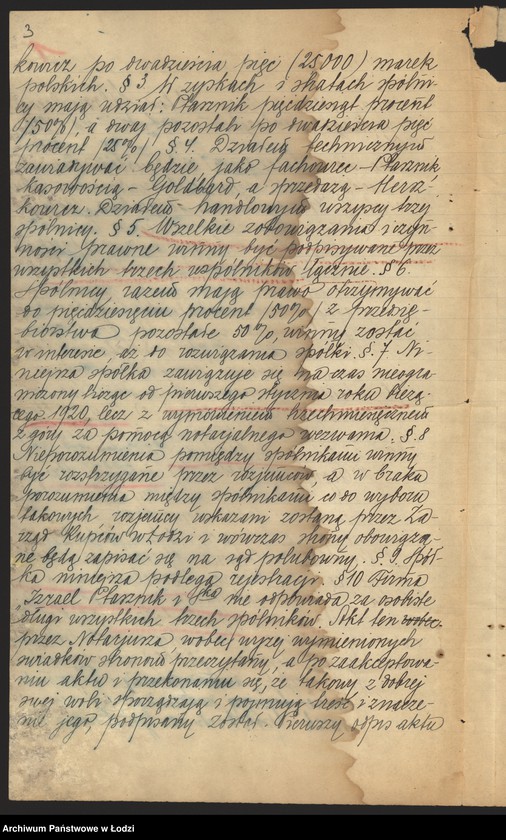 3
kowicz po dwadzieścia pięć (25000) marek
polskich. § 3 W zyskach i stratach spólni-
cy mają udział: Ptasznik pięćdziesiąt procent
/50%/, a dwaj pozostali po dwadzieścia pięć
procent /25%/ § 4. Działem technicznym
zawiadywać będzie jako fachowiec - Ptasznik
kasowością - Goldbard, a sprzedażą - Hersz-
kowicz. Działem handlowym wszyscy trzej
spólnicy. § 5. Wszelkie zobowiązania i czyn-
ności prawne winny być podpisywane przez
wszystkich trzech wspólników łącznie. § 6.
Spólnicy razem mają prawo otrzymywać
do pięćdziesięciu procent /50%/ z przedsię-
biorstwa pozostałe 50%, winny zostać
w interesie, aż do rozwiązania spółki. § 7 Ni-
niejsza spółka zawiązuje się na czas nieogra-
niczony licząc od pierwszego stycznia roku bieżą-
cego 1920, lecz z wymówieniem trzechmiesięcznem
z góry za pomocą notarjalnego wezwania. § 8
Nieporozumienia pomiędzy spólnikami winny
być rozstrzygane przez rozjemców a w braku
porozumienia między spólnikami, co do wyboru
takowych rozjemcy wskazani zostaną przez Za-
rząd Kupców w Łodzi i wówczas strony obowiąza-
ne będą zapisać się na sąd polubowny. § 9. Spół-
ka niniejsza podlega rejestracji. § 10 Firma
"Izrael Ptasznik i Ska" nie odpowiada za osobiste
długi wszystkich trzech spólników. Akt ten
przez Notarjusza, wobec wyżej wymienionych
świadków stronom przeczytany, a po zaakceptowa-
niu aktu i przekonaniu się, że takowy z dobrej
swej woli sporządzają i pojmują treść i znacze-
nie jego, podpisany został. Pierwszy odpis aktu
Archiwum Państwowe w Łodzi